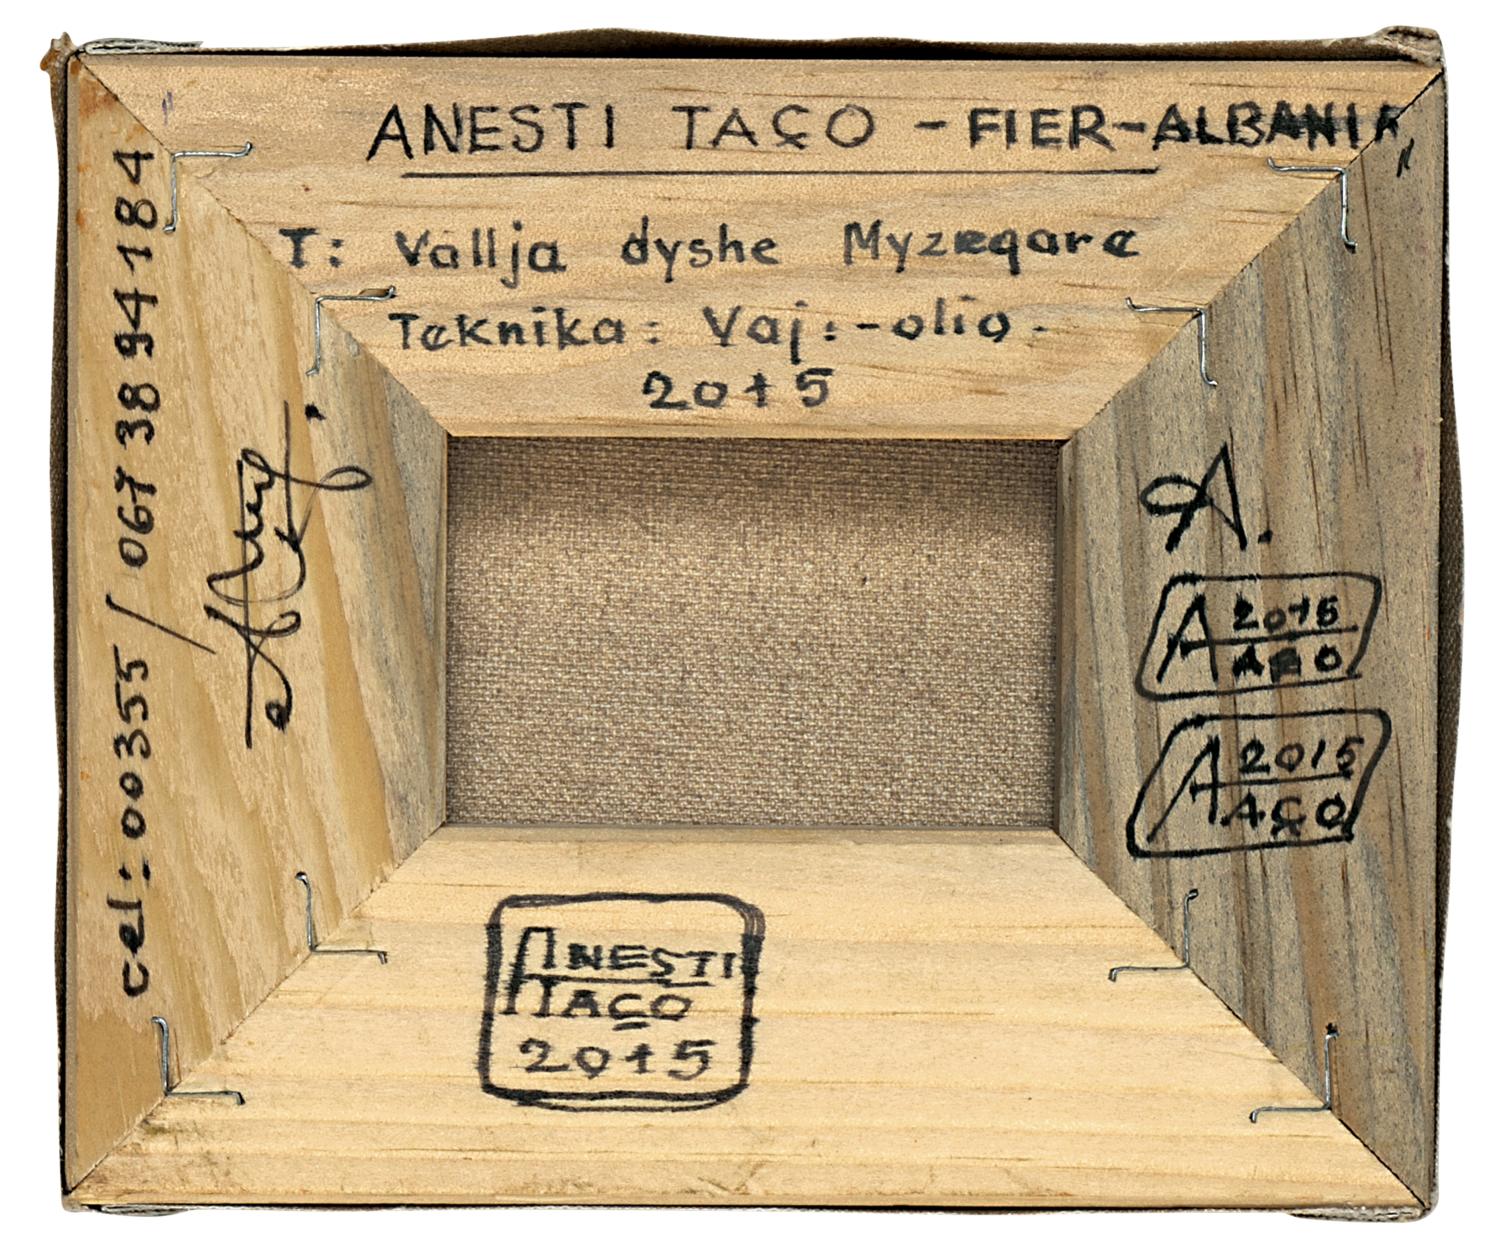 ANESTI TAÇO - FIER-ALBANIA
T: Vallja dyshe Myzeqare
Teknika: Vaj:-olio.
2015
cel: 00355 / 067 38 94 184
A.
A 2015
AÇO
A 2015
AÇO
ANESTI
TAÇO
2015